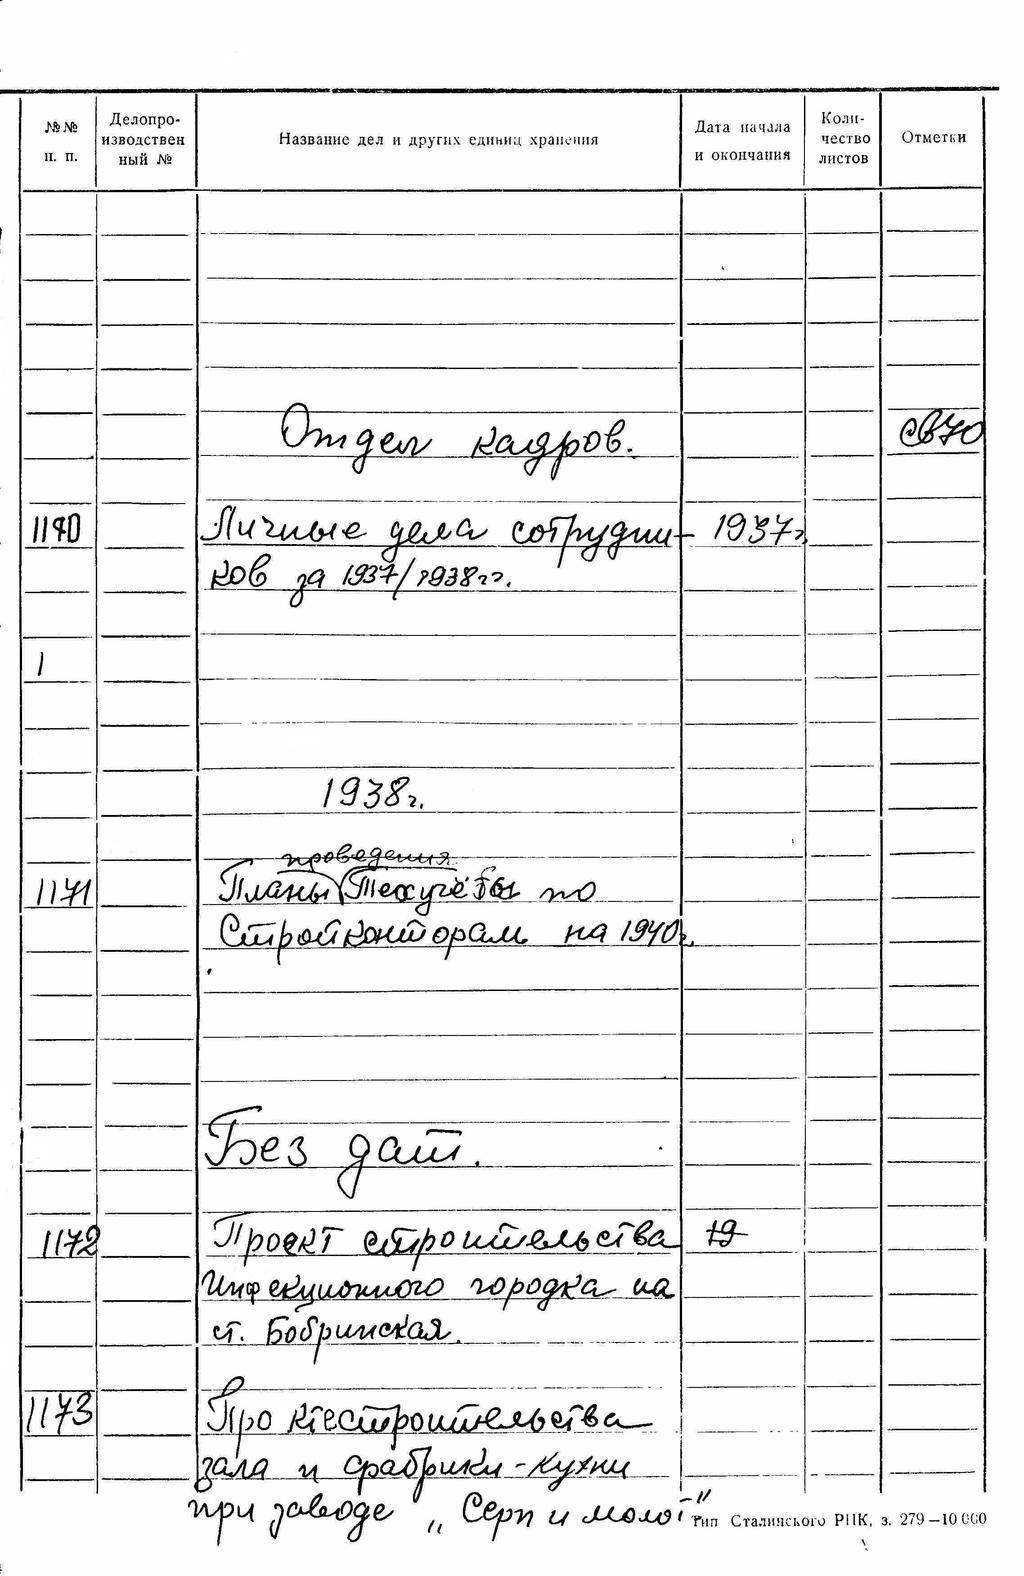 №№ п. п. Делопроизводствен ный № Название дел и других единиц хранения Дата начала и окончания Количество листов Отметки
Отдел кадров.
1170 Личные дела сотрудни- 1937г.
ков за 1937/1938гг.
1
1938г.
проведения
1171 Планы Техучёбы по
Стройконторам на 1940г.
Без дат.
1172 Проект строительства 19
Инфекционного городка на
ст. Бобринская.
1173 Проект строительства
зала и фабрики-кухни
при заводе „Серп и молот"
Тип Сталинского РПК, з. 279—10 000